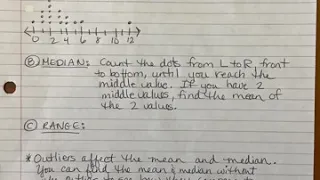 0 2 4 6 8 10 12
Ⓑ MEDIAN: Count the dots from L to R, front
to bottom, until you reach the
middle value. If you have 2
middle values, find the mean of
the 2 values.
Ⓒ RANGE:
* Outliers affect the mean and median.
You can find the mean & median without